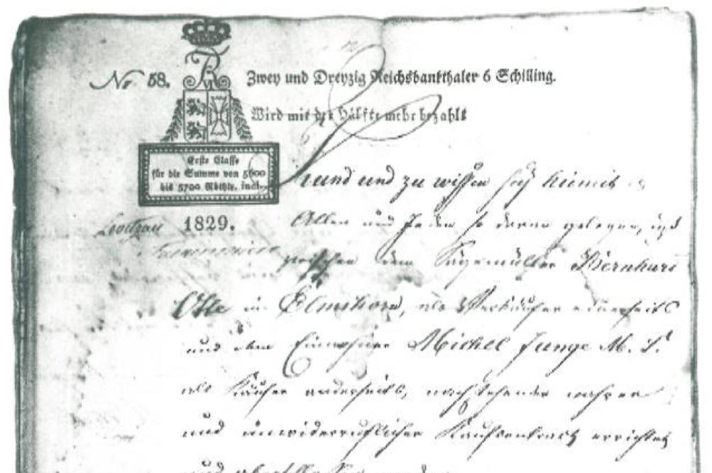 No 58. Zwey und Dreyzig Reichsbankthaler 6 Schilling.
Wird mit der Hälfte mehr bezahlt
Erste Classe
für die Summe von 5600
bis 5700 Rbthlr. incl.
1829.
Kund und zu wissen sey hiemit
Allen und Jeden so daran gelegen, daß
zwischen dem Sägemüller Bernhard
Otte in Elmshorn, als Verkäufer einerseits
und dem Einwohner Michel Junge M. S.
als Käufer anderseits, nachstehender wahrer
und unwiderruflicher Kaufcontract errichtet
und